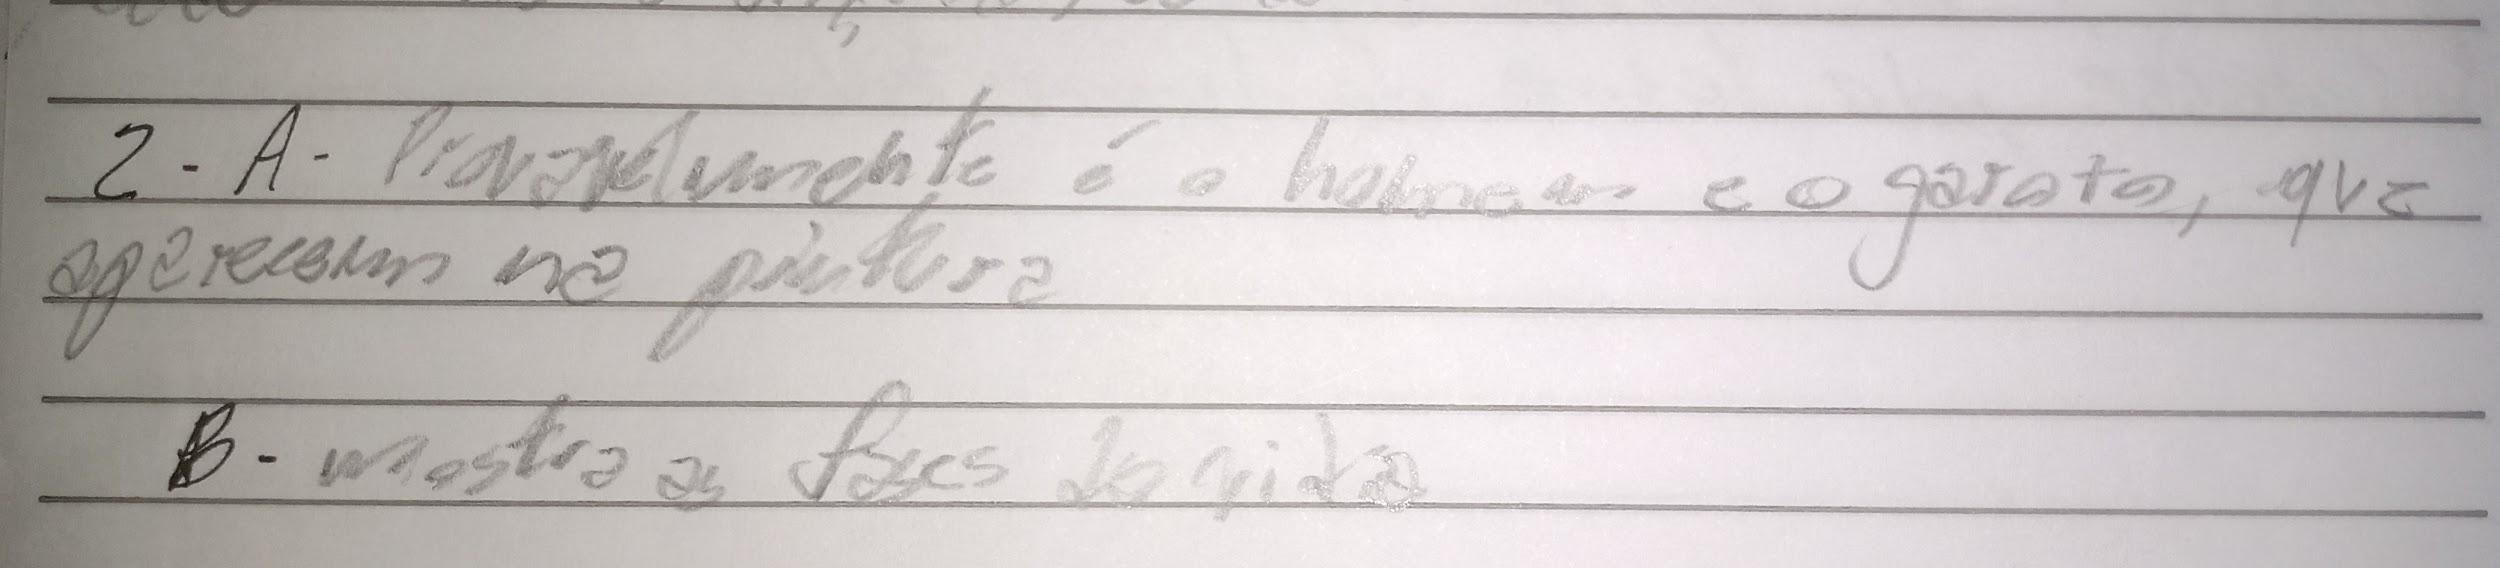 2 - A - Provavelmente é o homem e o garoto, que
aparecem na pintura
B - mostra as fases da vida